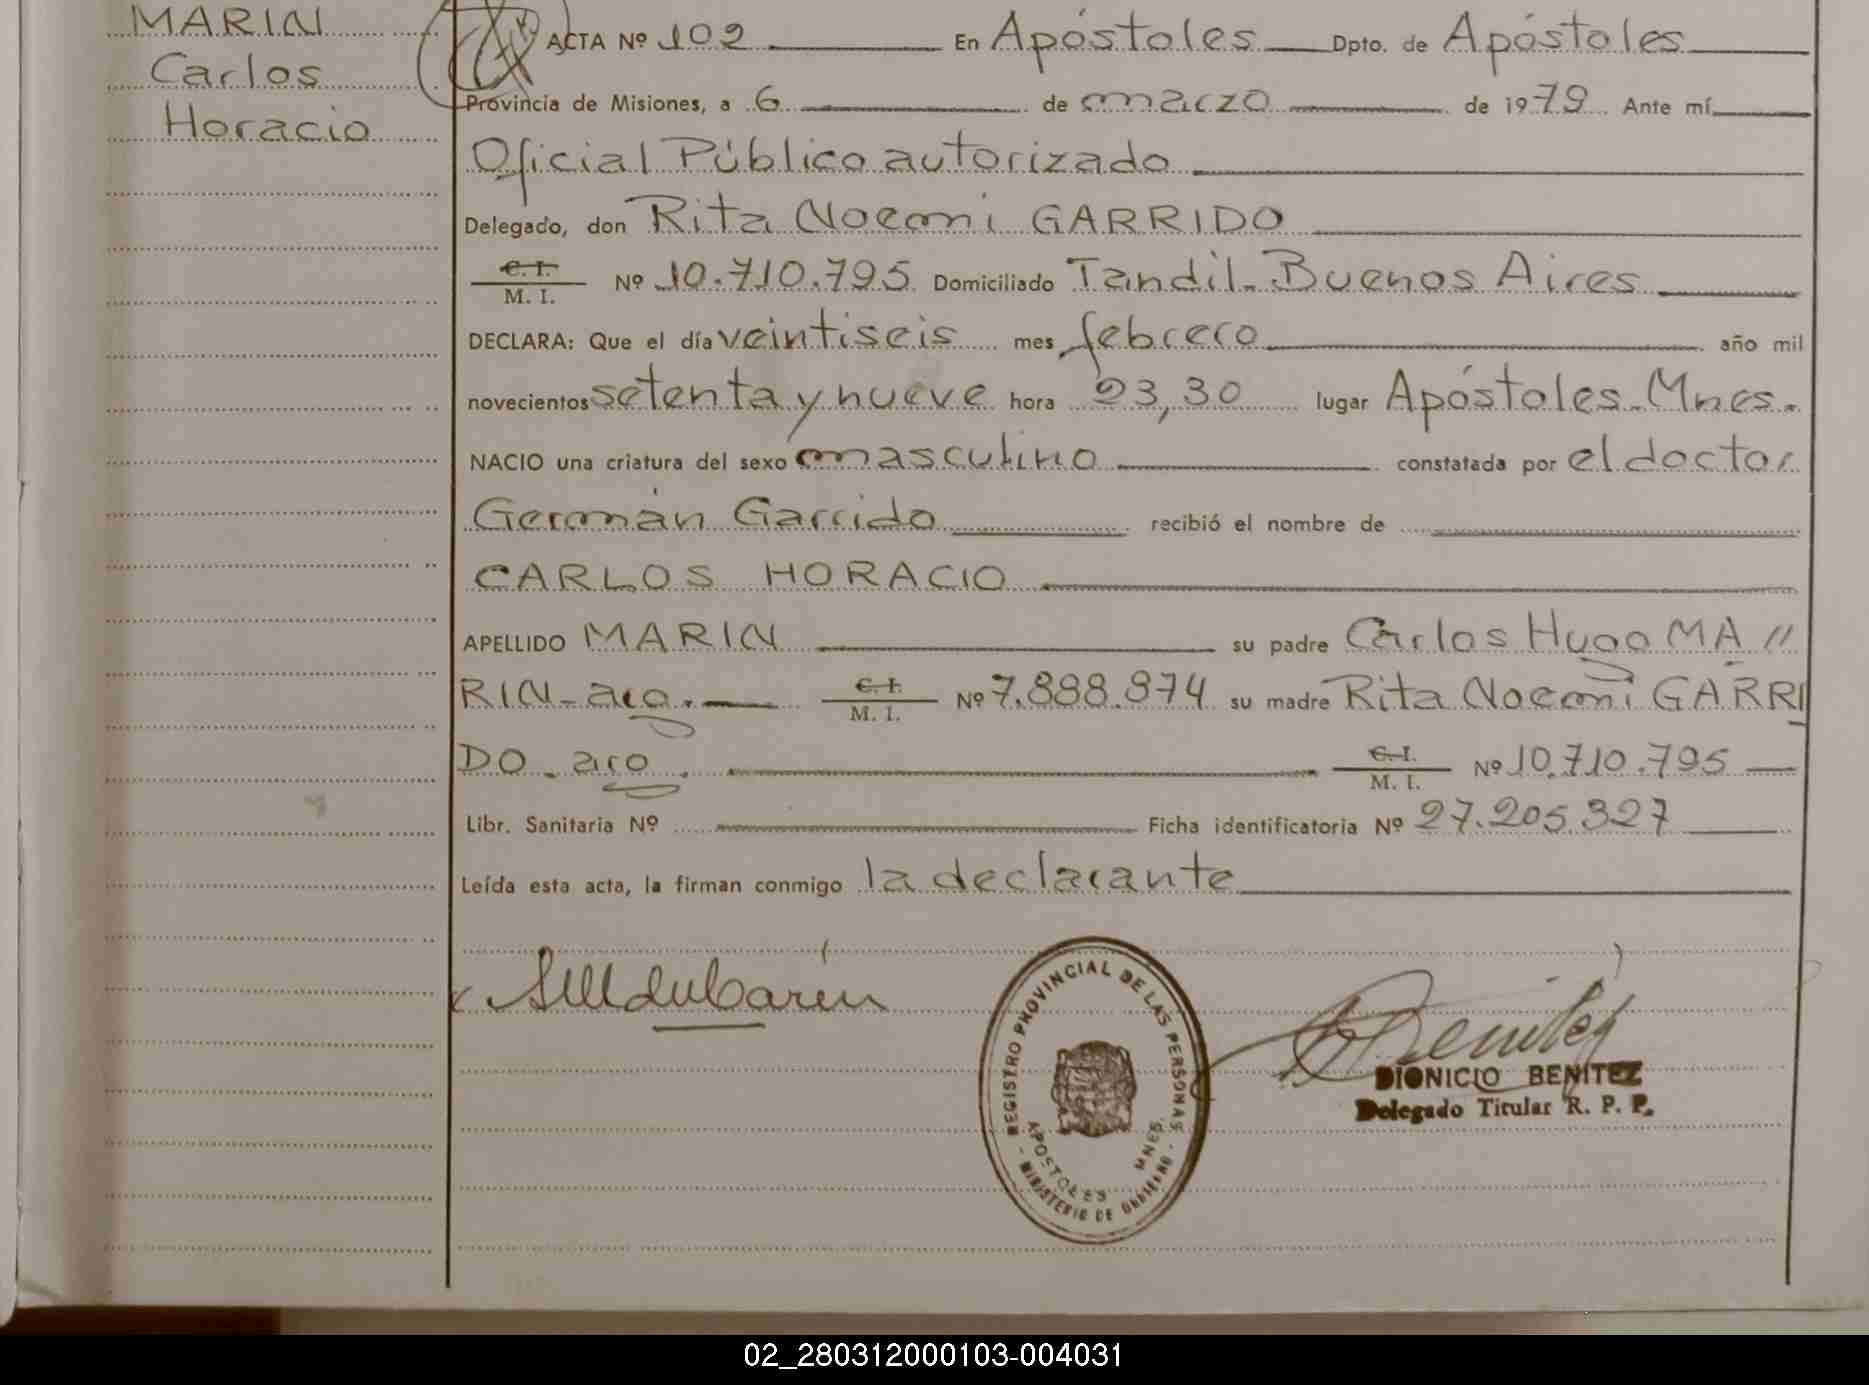 MARIN
Carlos
Horacio
ACTA Nº 102 En Apóstoles Dpto. de Apóstoles
Provincia de Misiones, a 6 de marzo de 1979 Ante mí
Oficial Público autorizado
Delegado, don Rita Noemi GARRIDO
C. I.
M. I. Nº 10.710.795 Domiciliado Tandil - Buenos Aires
DECLARA: Que el día veintiseis mes febrero año mil
novecientos setenta y nueve hora 23,30 lugar Apóstoles - Mnes.
NACIO una criatura del sexo masculino constatada por el doctor
Germán Garrido recibió el nombre de
CARLOS HORACIO
APELLIDO MARIN su padre Carlos Hugo MA //
RIN - arg. C. I.
M. I. Nº 7.888.974 su madre Rita Noemi GARRI
DO - arg. C. I.
M. I. Nº 10.710.795
Libr. Sanitaria Nº Ficha identificatoria Nº 27.205.327
Leída esta acta, la firman conmigo la declarante
REGISTRO PROVINCIAL DE LAS PERSONAS
APOSTOLES MNES.
- MINISTERIO DE GOBIERNO -
Benitez
DIONICIO BENITEZ
Delegado Titular R. P. P.
02_280312000103-004031